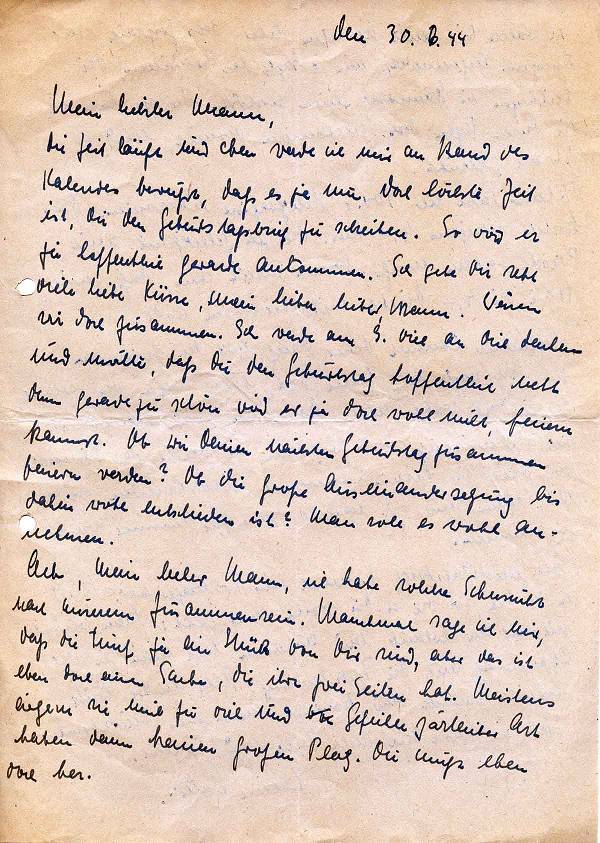 den 30. 6. 44
Mein lieber Mann,
die Zeit läuft und eben werde ich mir an Hand des
Kalenders bewußt, daß es ja nun doch höchste Zeit
ist, Dir den Geburtstagsbrief zu schreiben. So wird er
ja hoffentlich gerade ankommen. Ich gebe Dir sehr
viele liebe Küsse, mein lieber lieber Mann. Wären
wir doch zusammen. Ich werde am 9. viel an Dich denken
und möchte, daß Du den Geburtstag hoffentlich nett
denn gerade zu schön wird er ja doch wohl nicht, feiern
kannst. Ob wir Deinen nächsten Geburtstag zusammen
feiern werden? Ob die große Auseinandersetzung bis
dahin wohl entschieden ist? Man soll es wohl an-
nehmen.
Ach, mein lieber Mann, ich habe solche Sehnsucht
nach unserem Zusammensein. Manchmal sage ich mir,
daß die Jungs ja ein Stück von Dir sind, aber das ist
eben doch eine Sache, die ihre zwei Seiten hat. Meistens
ärgern sie mich zu viel und Gefühle zärtlicher Art
haben dann keinen großen Platz. Du mußt eben
doch her.